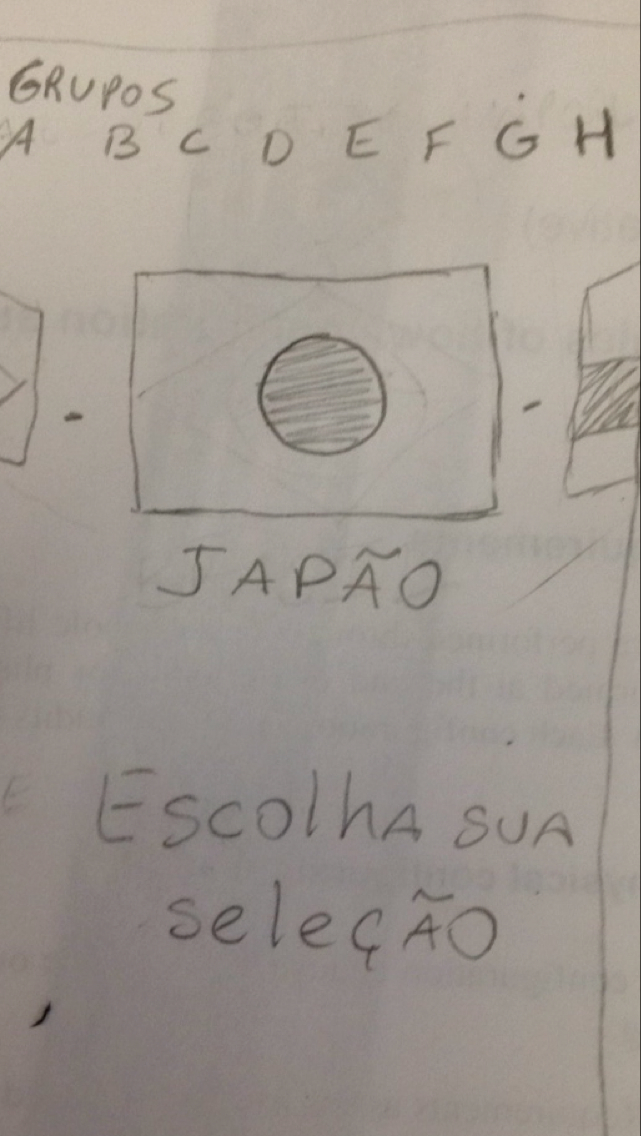 GRUPOS
A B C D E F G H
JAPÃO
Escolha sua
seleção